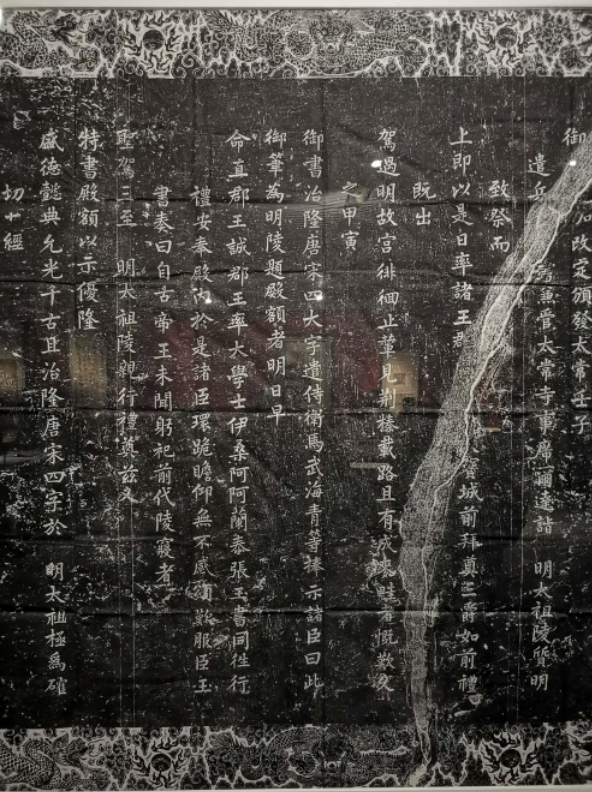 御
改定頒發太常壬子
遣兵 書兼管太常寺事席爾達詣 明太祖陵質明
致祭而
上即以是日率諸王 城前拜奠三爵如前禮
既出
駕過明故宮徘徊止輦見荊榛載路且有成 畦者慨歎久
之甲寅
御書治隆唐宋四大字遣侍衛馬武海青等捧示諸臣曰此
御筆為明陵題殿額者明日早
命直郡王誠郡王率大學士伊桑阿阿蘭泰張玉書同往行
禮安奉殿內於是諸臣環跪瞻仰無不感 歎服臣玉
書奏曰自古帝王未聞躬祀前代陵寢者
聖駕三至 明太祖陵親行禮奠茲又
特書殿額以示優隆
盛德懿典允光千古且治隆唐宋四字於 明太祖極為確
切十經